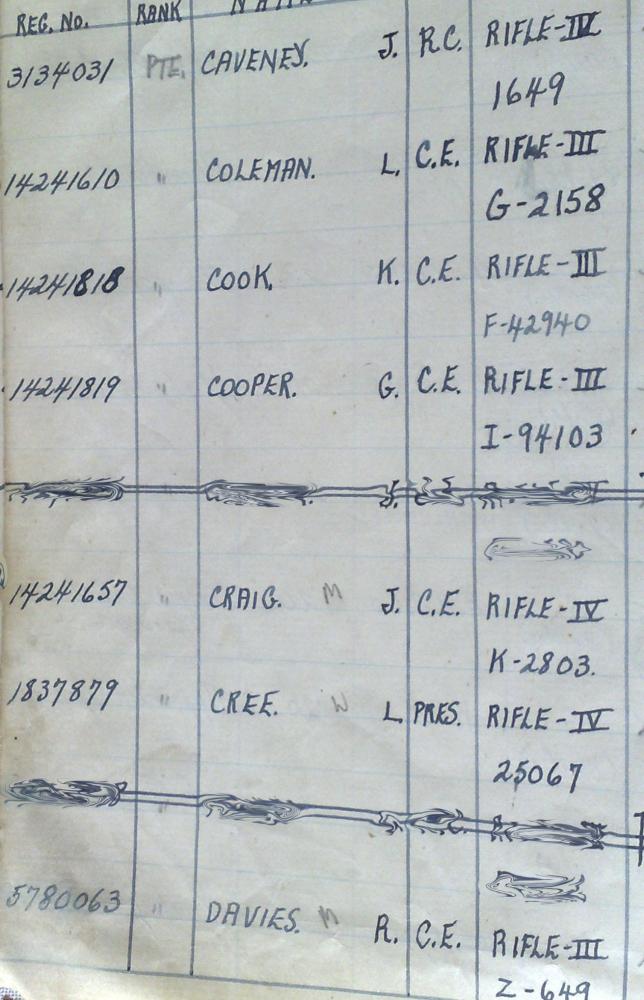 REG. No. RANK
3134031 PTE. CAVENEY. J. R.C. RIFLE-IV
1649
14241610 " COLEMAN. L. C.E. RIFLE-III
G-2158
14241818 " COOK. K. C.E. RIFLE-III
F-42940
14241819 " COOPER. G. C.E. RIFLE-III
I-94103
14241657 " CRAIG. M J. C.E. RIFLE-IV
K-2803.
1837879 " CREE. W L. PRES. RIFLE-IV
25067
"
5780063 " DAVIES. M R. C.E. RIFLE-III
Z-649